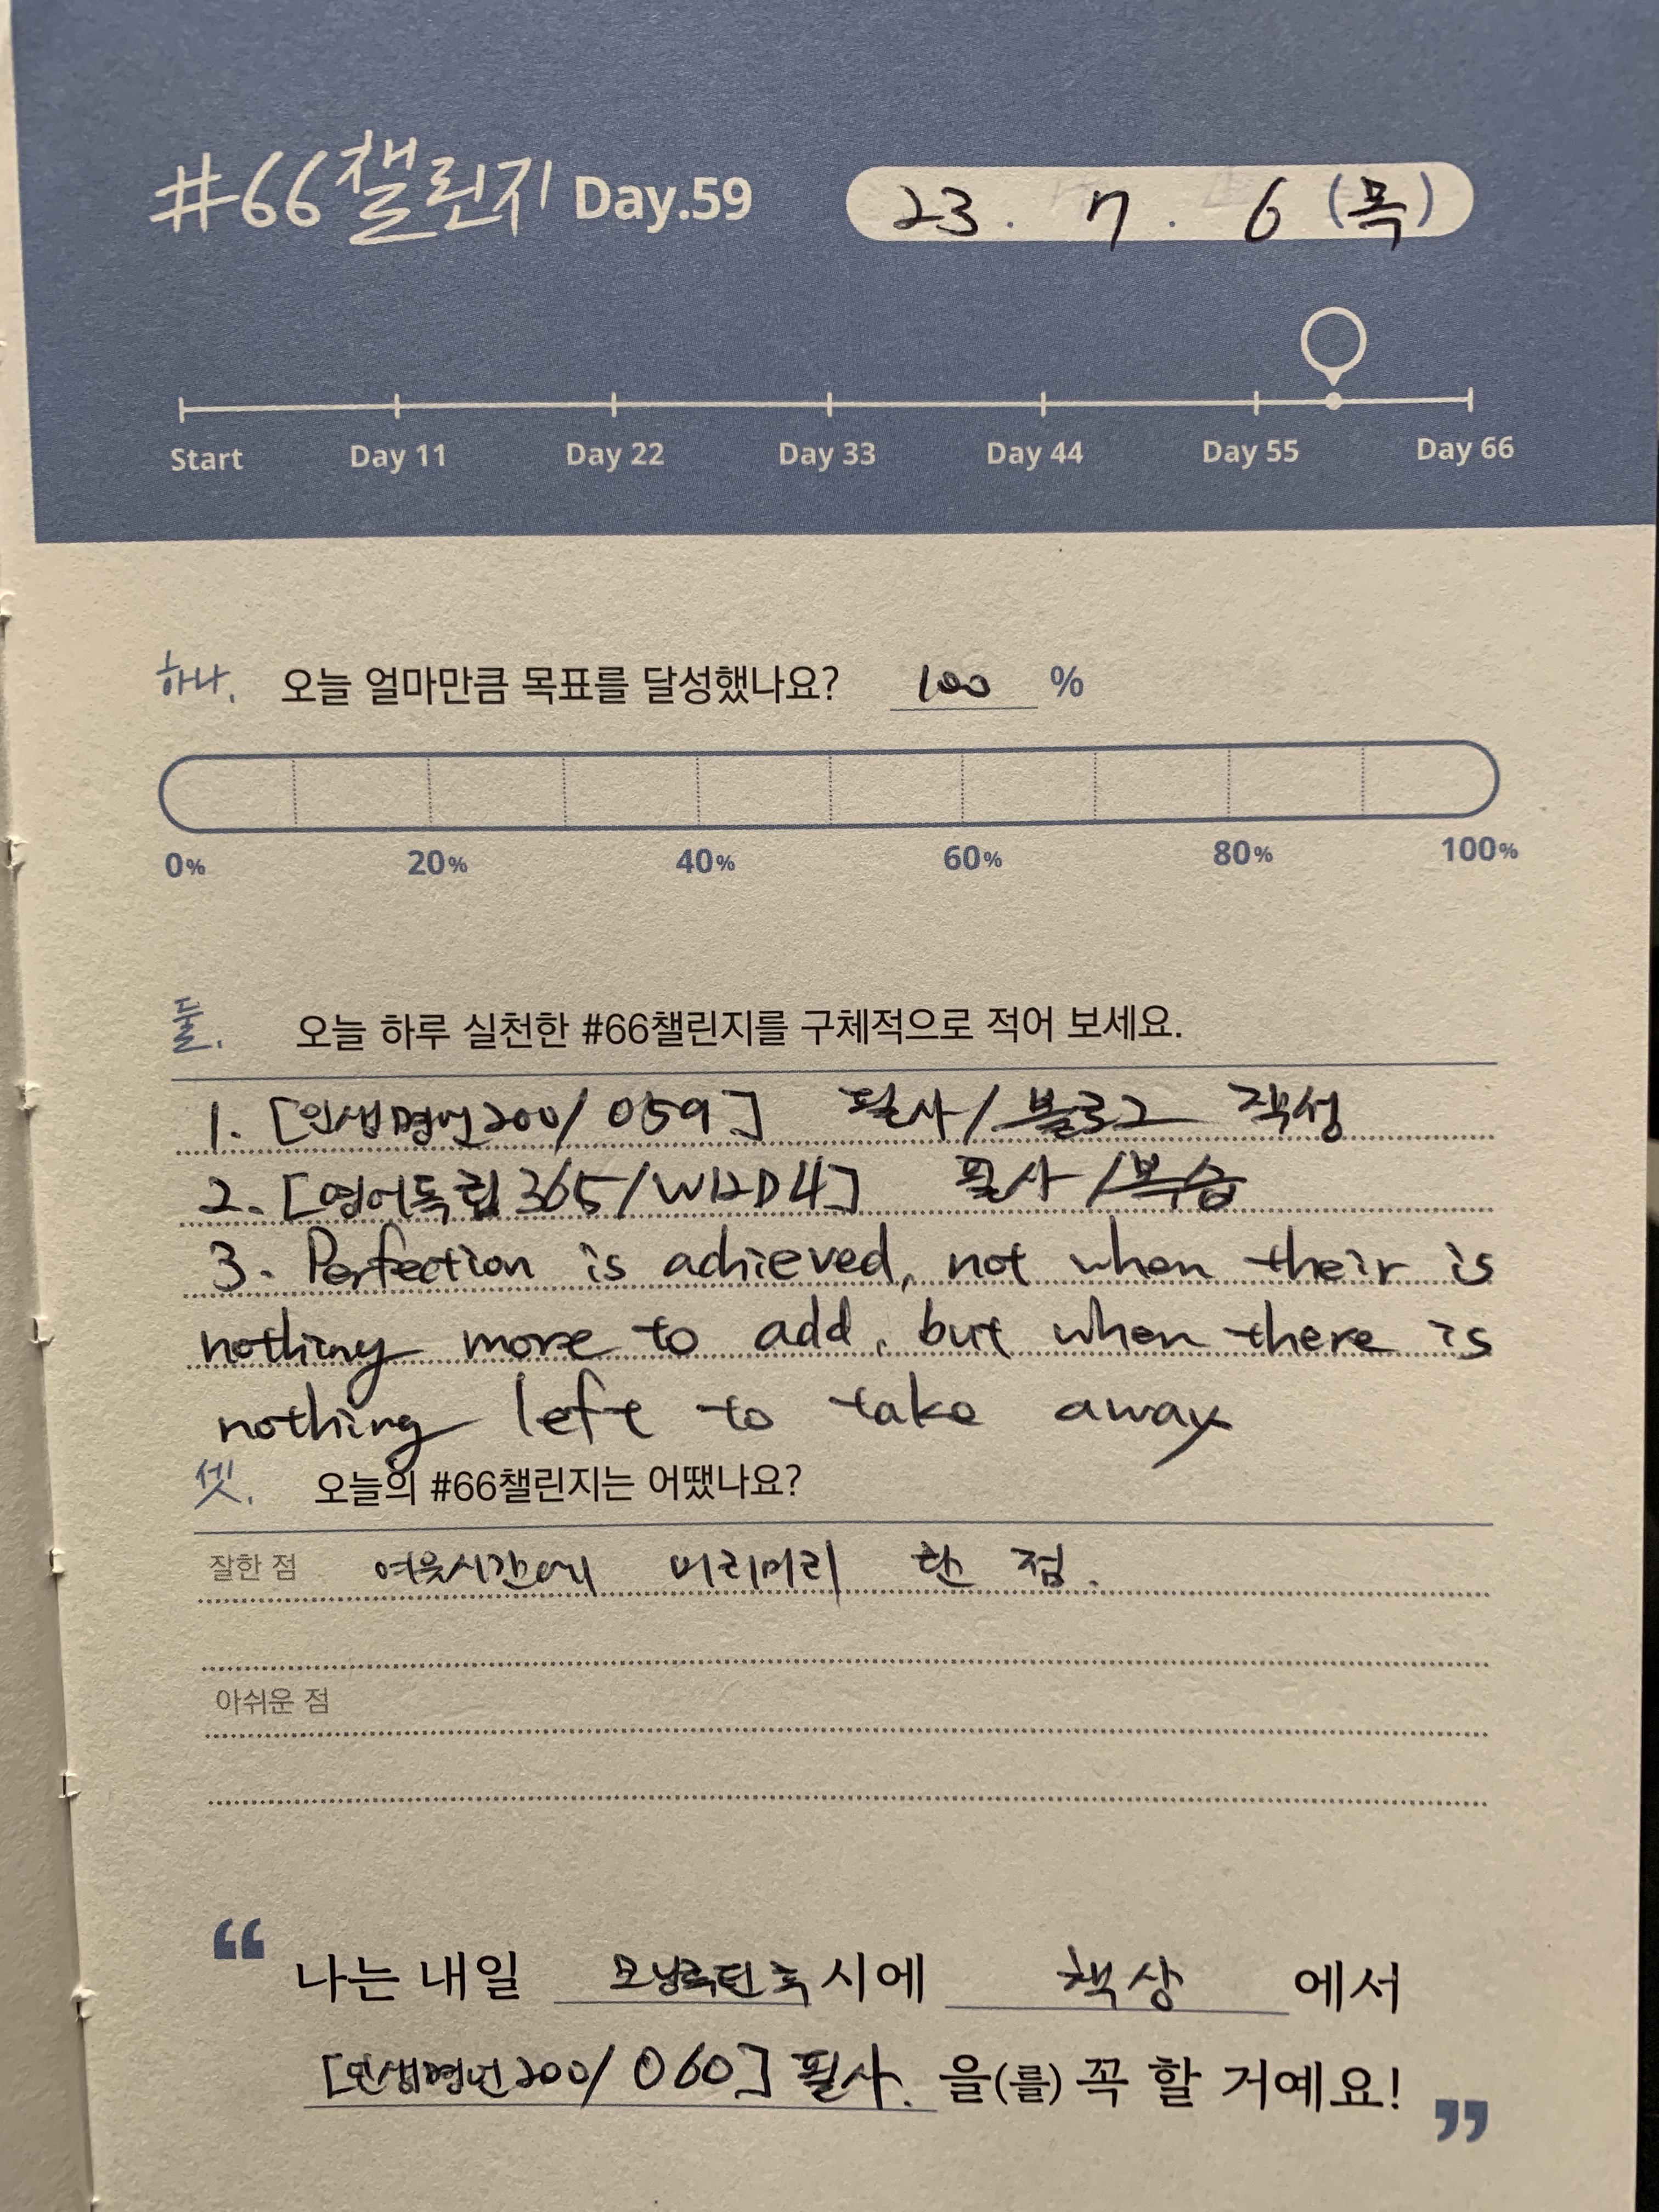 #66챌린지 Day.59
23. 7. 6 (목)
Start Day 11 Day 22 Day 33 Day 44 Day 55 Day 66
하나. 오늘 얼마만큼 목표를 달성했나요? 100 %
0% 20% 40% 60% 80% 100%
둘. 오늘 하루 실천한 #66챌린지를 구체적으로 적어 보세요.
1. [인생명언200/059] 필사/블로그 작성
2. [영어독립365/W12D4] 필사/복습
3. Perfection is achieved, not when their is
nothing more to add, but when there is
nothing left to take away
셋. 오늘의 #66챌린지는 어땠나요?
잘한 점 여유시간에 미리미리 한 점.
아쉬운 점
“ 나는 내일 모닝루틴 시에 책상 에서
[인생명언200/060] 필사. 을(를) 꼭 할 거예요! ”